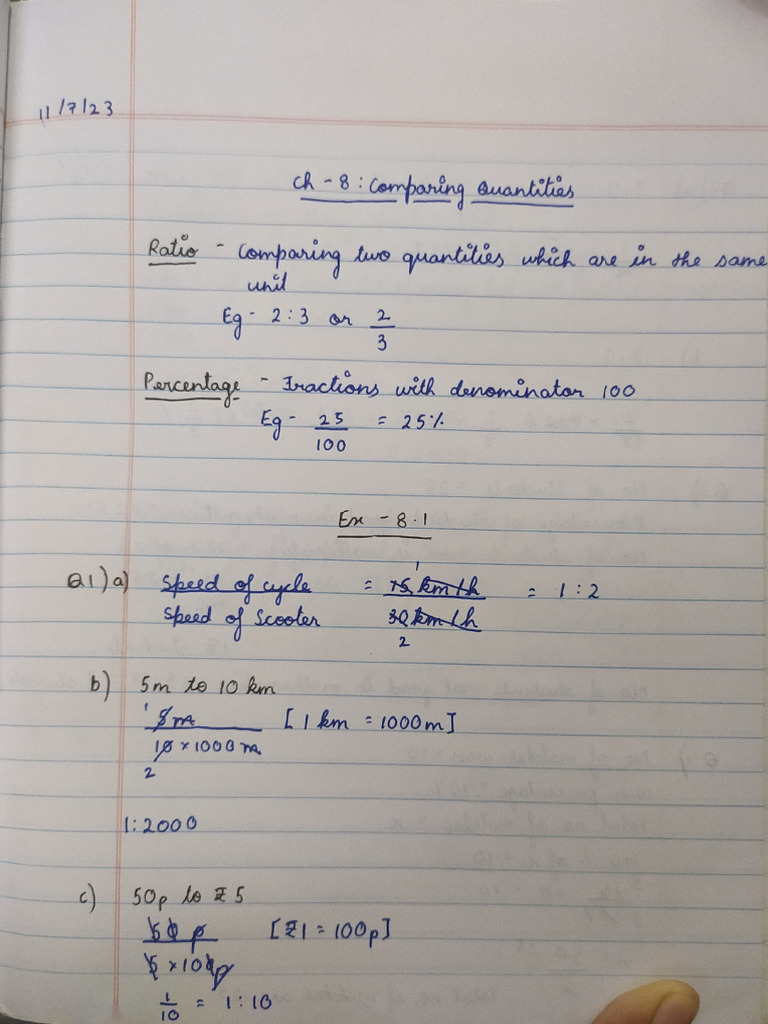 11/7/23
Ch - 8 : Comparing Quantities
Ratio - Comparing two quantities which are in the same
unit
Eg - 2 : 3 or 2/3
Percentage - Fractions with denominator 100
Eg - 25/100 = 25%
Ex - 8.1
Q1) a) Speed of cycle / Speed of Scooter = 15 km/h / 30 km/h = 1 : 2
1
2
b) 5m to 10 km
1 5 m / 10 × 1000 m [1 km = 1000m]
2
1:2000
c) 50p to ₹5
50 p / 5 × 100p [₹1 = 100p]
1/10 = 1:10